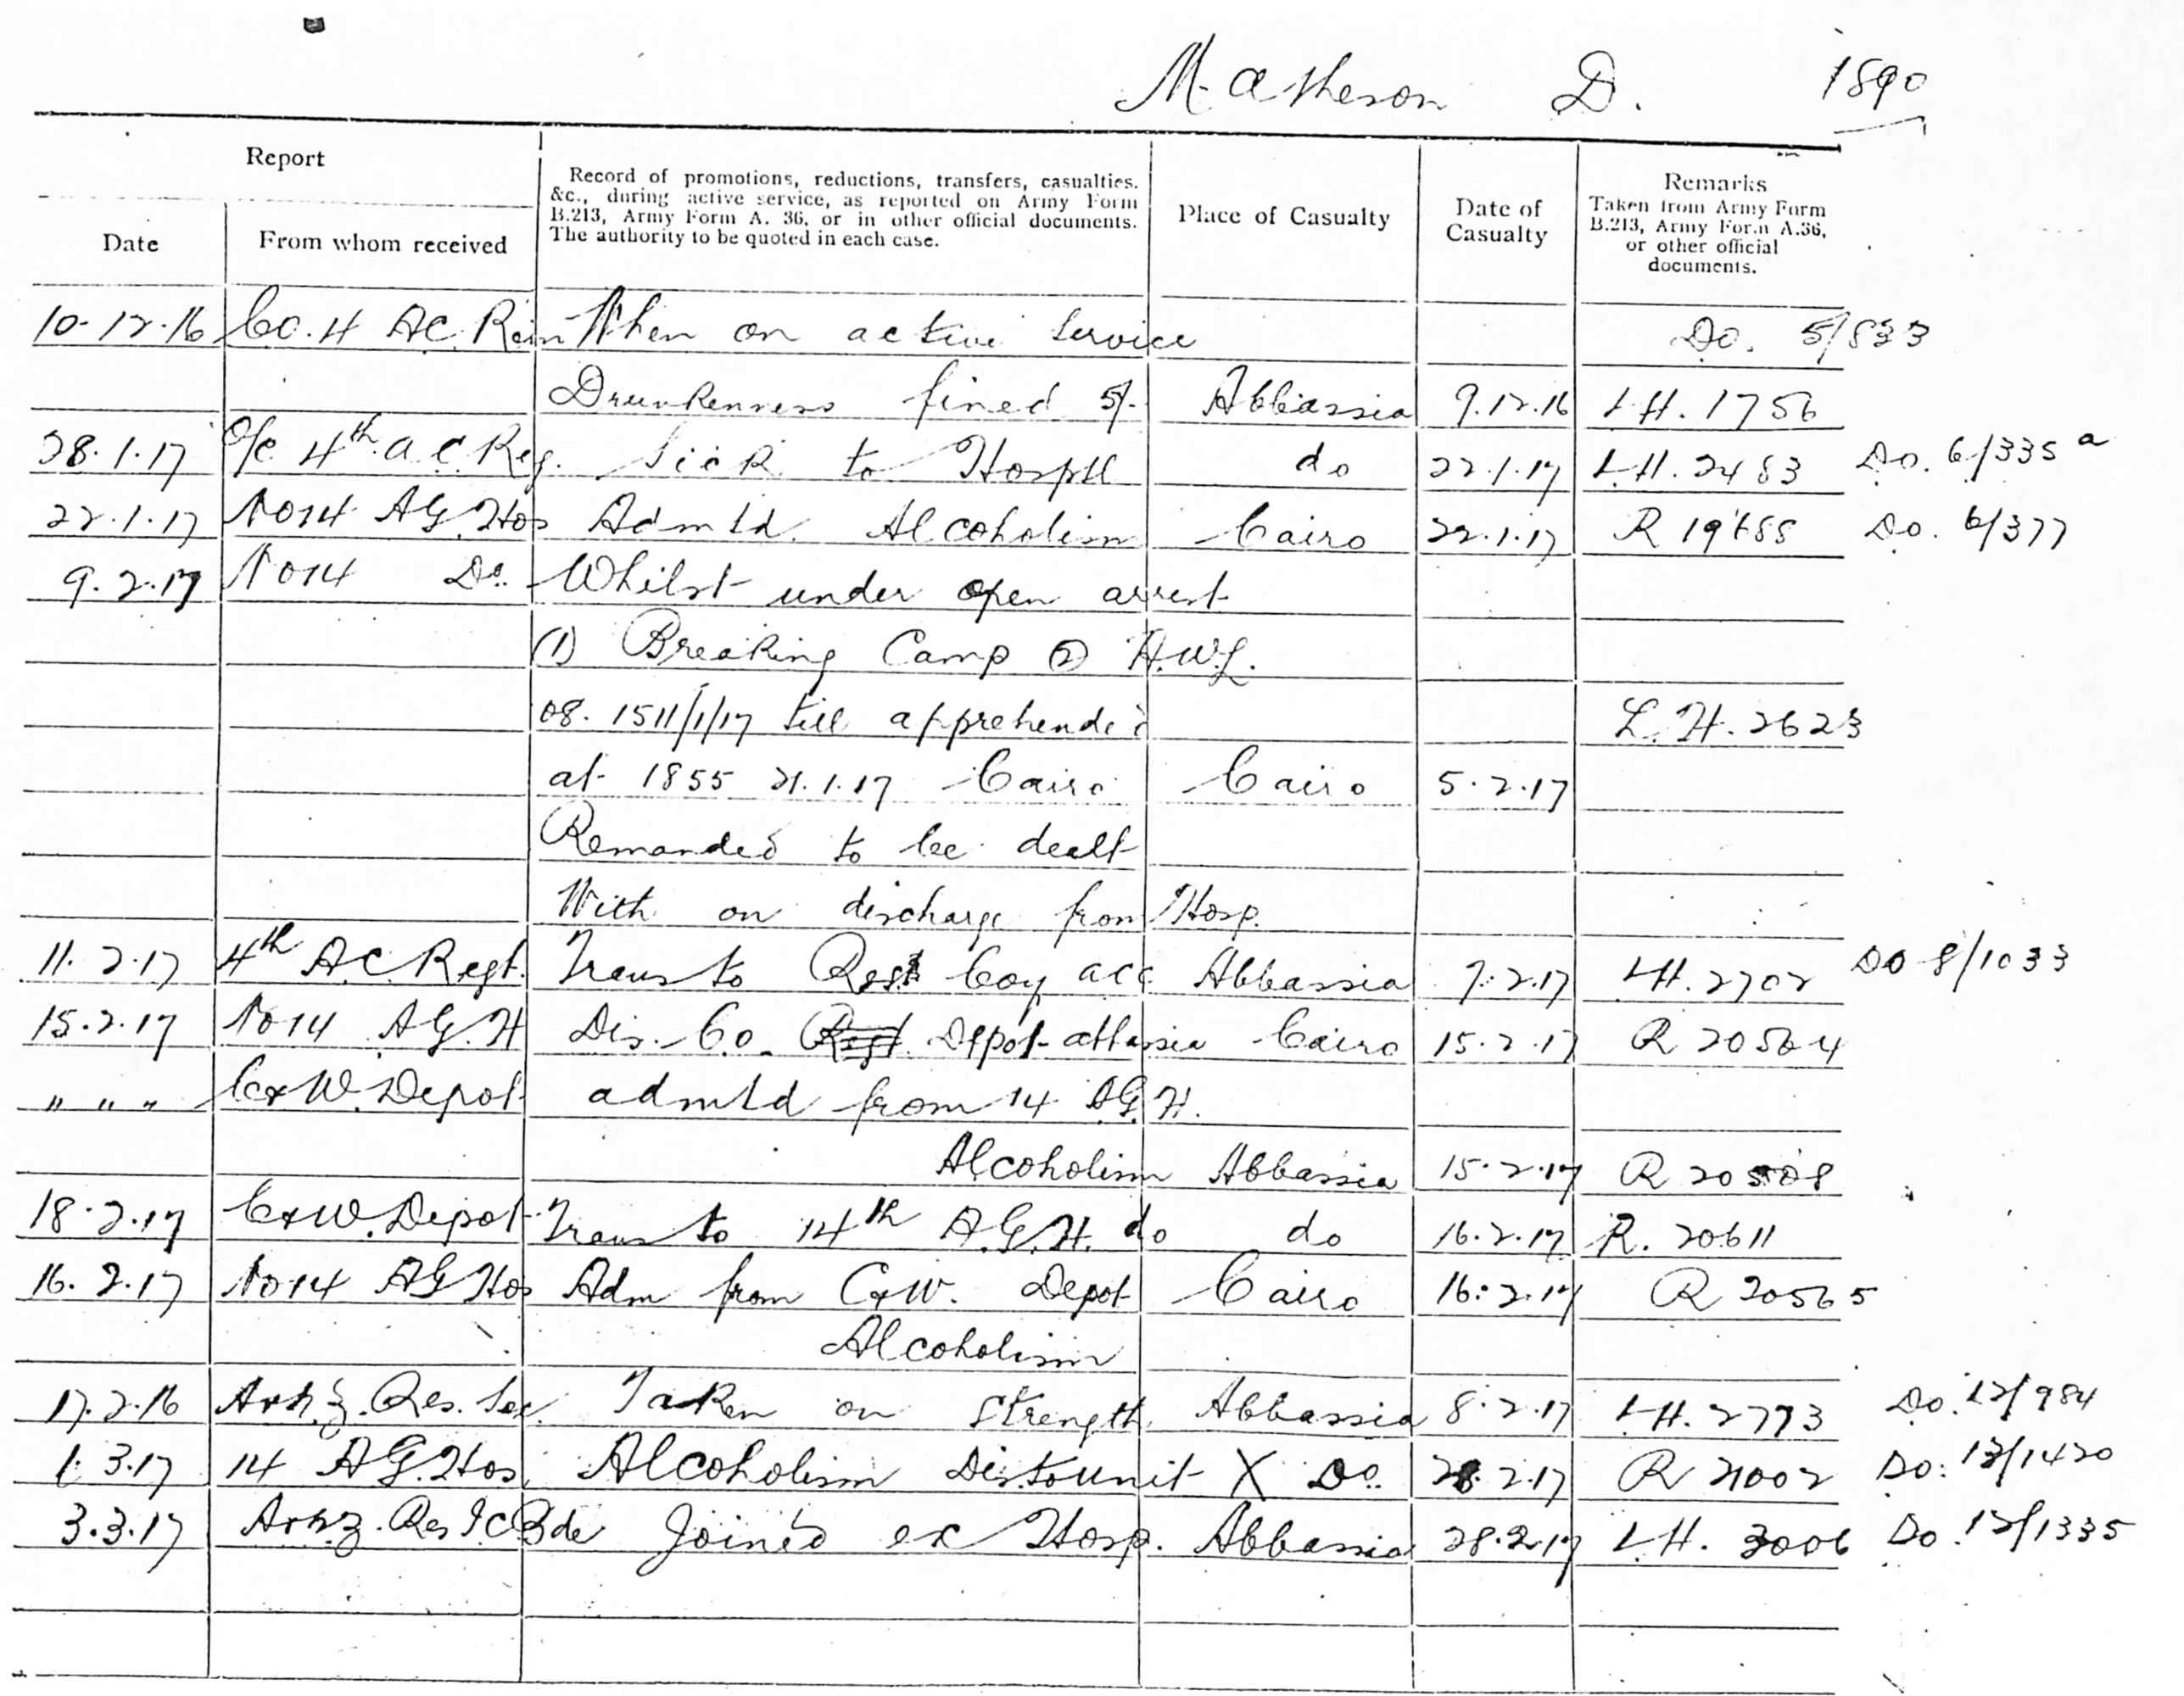 Matheson D. 1890
Report
Record of promotions, reductions, transfers, casualties.
&c., during active service, as reported on Army Form
B.213, Army Form A. 36, or in other official documents.
The authority to be quoted in each case.
Place of Casualty
Date of
Casualty
Remarks
Taken from Army Form
B.213, Army Form A.36,
or other official
documents.
Date
From whom received
10-12-16 Co. 4 AC. Rein When on active Service Do. 5/833
Drunkenness fined 5/- Abbassia 9.12.16 LH. 1756
28.1.17 O/c 4th a.C. Reg. Sick to Hosptl do 22.1.17 LH. 2483 Do. 6/335 a
22.1.17 No14 AG Hos Admtd. Alcoholism Cairo 22.1.17 R Do. 6/377
9.2.17 No14 Do. Whilst under open arrest
(1) Breaking Camp (2) A.W.L.
08.15 11/1/17 till apprehended L.H. 2623
at 1855 21.1.17 Cairo Cairo 5.2.17
Remanded to be dealt
With on discharge from Hosp.
11.2.17 4th A.C. Regt. Trans to Rest Coy acc Abbassia 7.2.17 LH. 2702 DO 8/1033
15.2.17 No14 AG.H Dis. Co. Regt. Depot abbassia Cairo 15.2.17 R 20564
" " " C&W. Depot admtd from 14 AG.H.
Alcoholism Abbassia 15.2.17 R
18.2.17 C&W. Depot Trans to 14th A.G.H. do do 16.2.17 R. 20611
16.2.17 No14 AG Hos Adm from C&W. Depot Cairo 16.2.17 R 20565
Alcoholism
17.2.16 A&N.Z. Res. Sec. Taken on strength Abbassia 8.2.17 LH. 2773 Do. 12/984
1.3.17 14 AG.Hos. Alcoholism Dis.to unit X Do. 28.2.17 R 21002 Do: 13/1420
3.3.17 A&NZ. Res I C Bde Joined ex Hosp. Abbassia 28.2.17 LH. 3006 Do. 12/1335